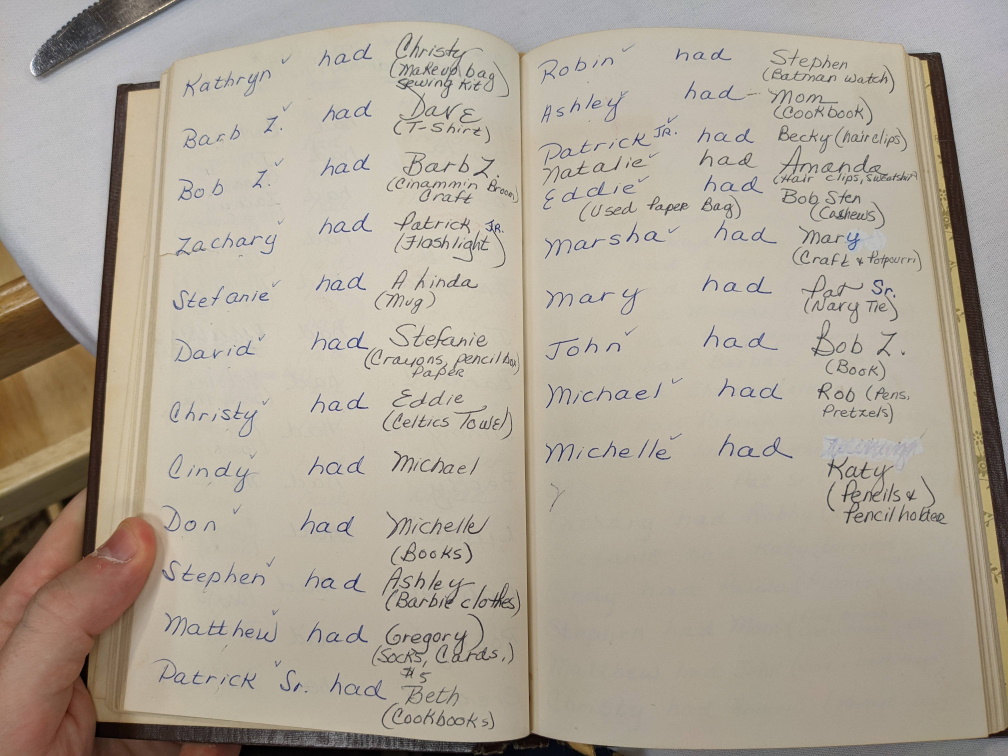 Kathryn had Christy
(Makeup bag
sewing kit)
Barb Z. had Dave
(T-Shirt)
Bob Z. had Barb Z.
(Cinammin Broom
Craft
Zachary had Patrick JR.
(Flashlight)
Stefanie had Ahinda
(Mug)
David had Stefanie
(Crayons, pencil box
Paper
Christy had Eddie
(Celtics Towel)
Cindy had Michael
Don had Michelle
(Books)
Stephen had Ashley
(Barbie clothes)
Matthew had Gregory
(Socks, Cards,)
#5
Patrick Sr. had Beth
(Cookbooks)
Robin had Stephen
(Batman watch)
Ashley had - Mom
(Cookbook)
Patrick JR. had Becky (hair clips)
Natalie had Amanda
(Hair clips, Sweatshirt
Eddie had Bob Sten
(Used Paper Bag) (Cashews)
Marsha had Mary
(Craft & Potpourri)
Mary had Pat Sr.
(Navy Tie)
John had Bob Z.
(Book)
Michael had Rob (Pens,
Pretzels)
Michelle had
Katy
(Pencils &
Pencil holder)